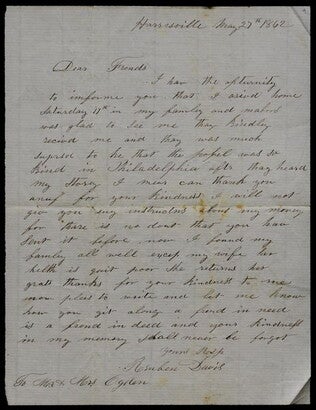 Harresville May 27th 1862
Dear Frends
I have the opturnity
to imforme you that I arived home
Saturday 11th in my famley and
was glad to See me thay kindley
recived me and thay was much
suprised to he that the pepel was so
kind in Philadelphia aftr thay heard
my Storey I never can thank you
anuf for your kindness I will not
give you eny instructons about my money
for thare is no dout that you hav
Sent it before now I found my
famley all well excep my wife her
helth is quit poor She returns her
grate thanks for your kindness to me
now ples to write and let me know
how you git along a frend in need
is a frend in deed and your kindness
in my memory Shall never be forgot
yours Resp
Reuben Davis
To Mr & Mrs Ogden